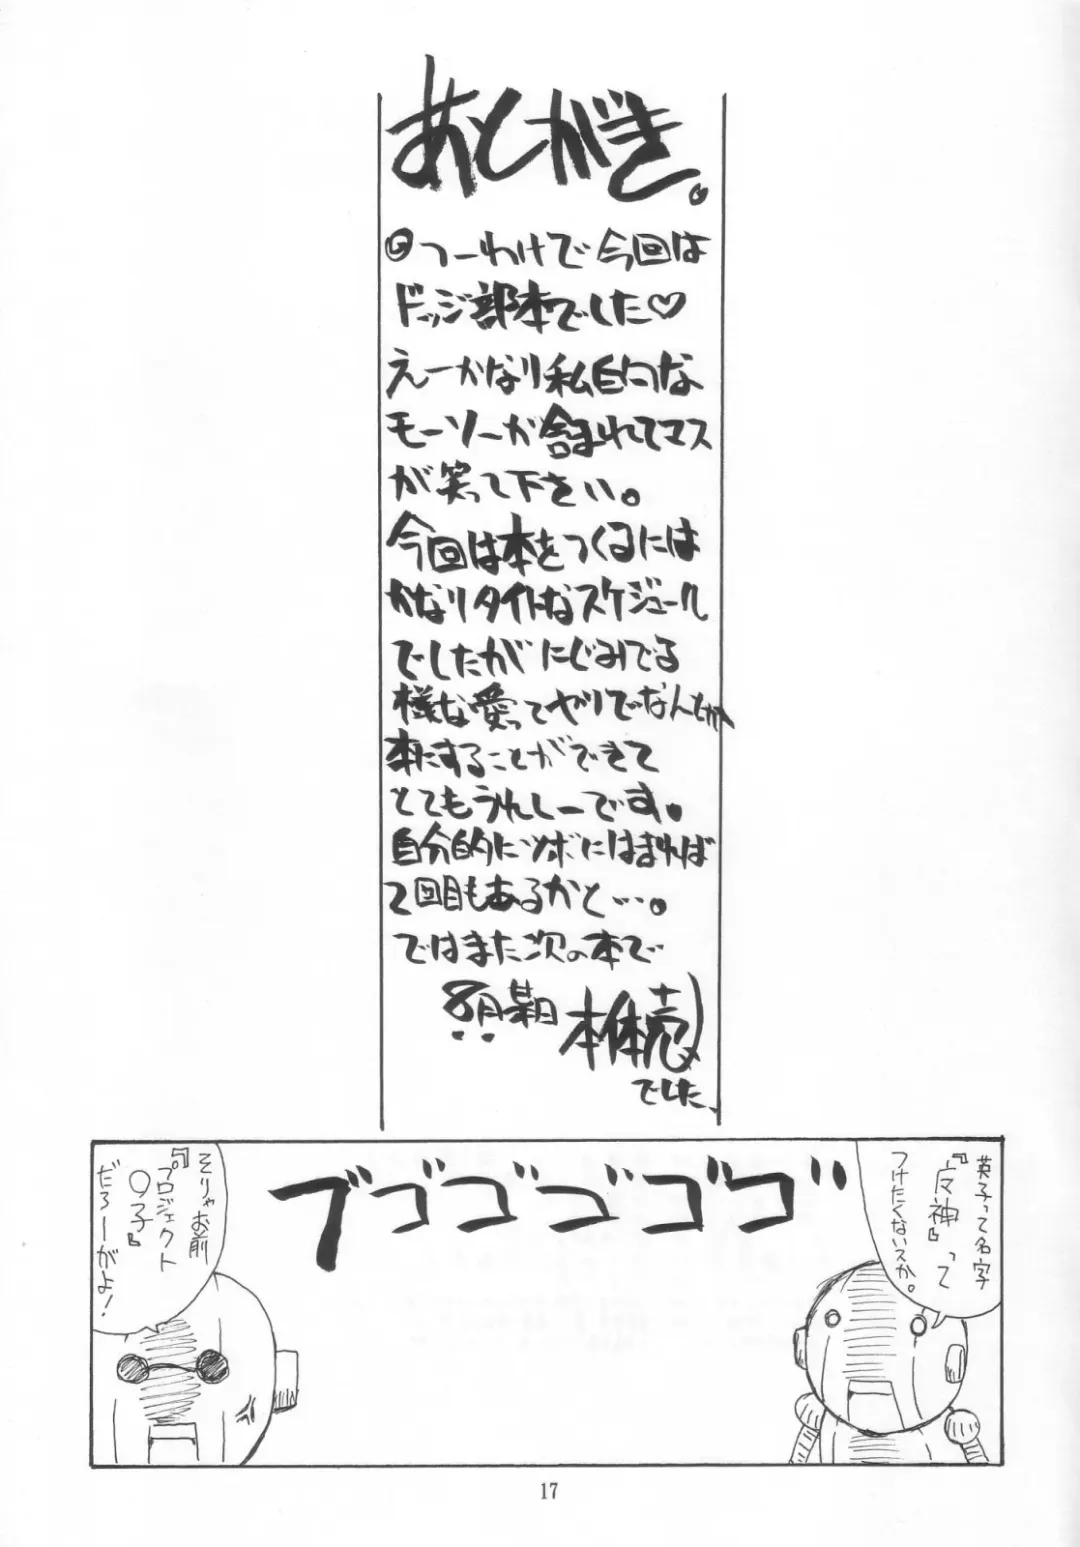 あとがき。
つーわけで今回は
ドッジ部本でした♡
えーかなり私的な
モーソーが含まれてマス
が笑って下さい。
今回は本をつくるには
かなりタイトなスケジュール
でしたがにじみでる
様な愛ってヤツでなんとか
本にすることができて
とてもうれしーです。
自分的にツボにはまれば
2回目もあるかと…。
ではまた次の本で
8月某日 本体売
でした。
英子って名字
『女神』って
つけたくないスか。
ブゴゴゴゴゴ
そりゃお前
『プロジェクト
〇子』
だろーがよ!
17